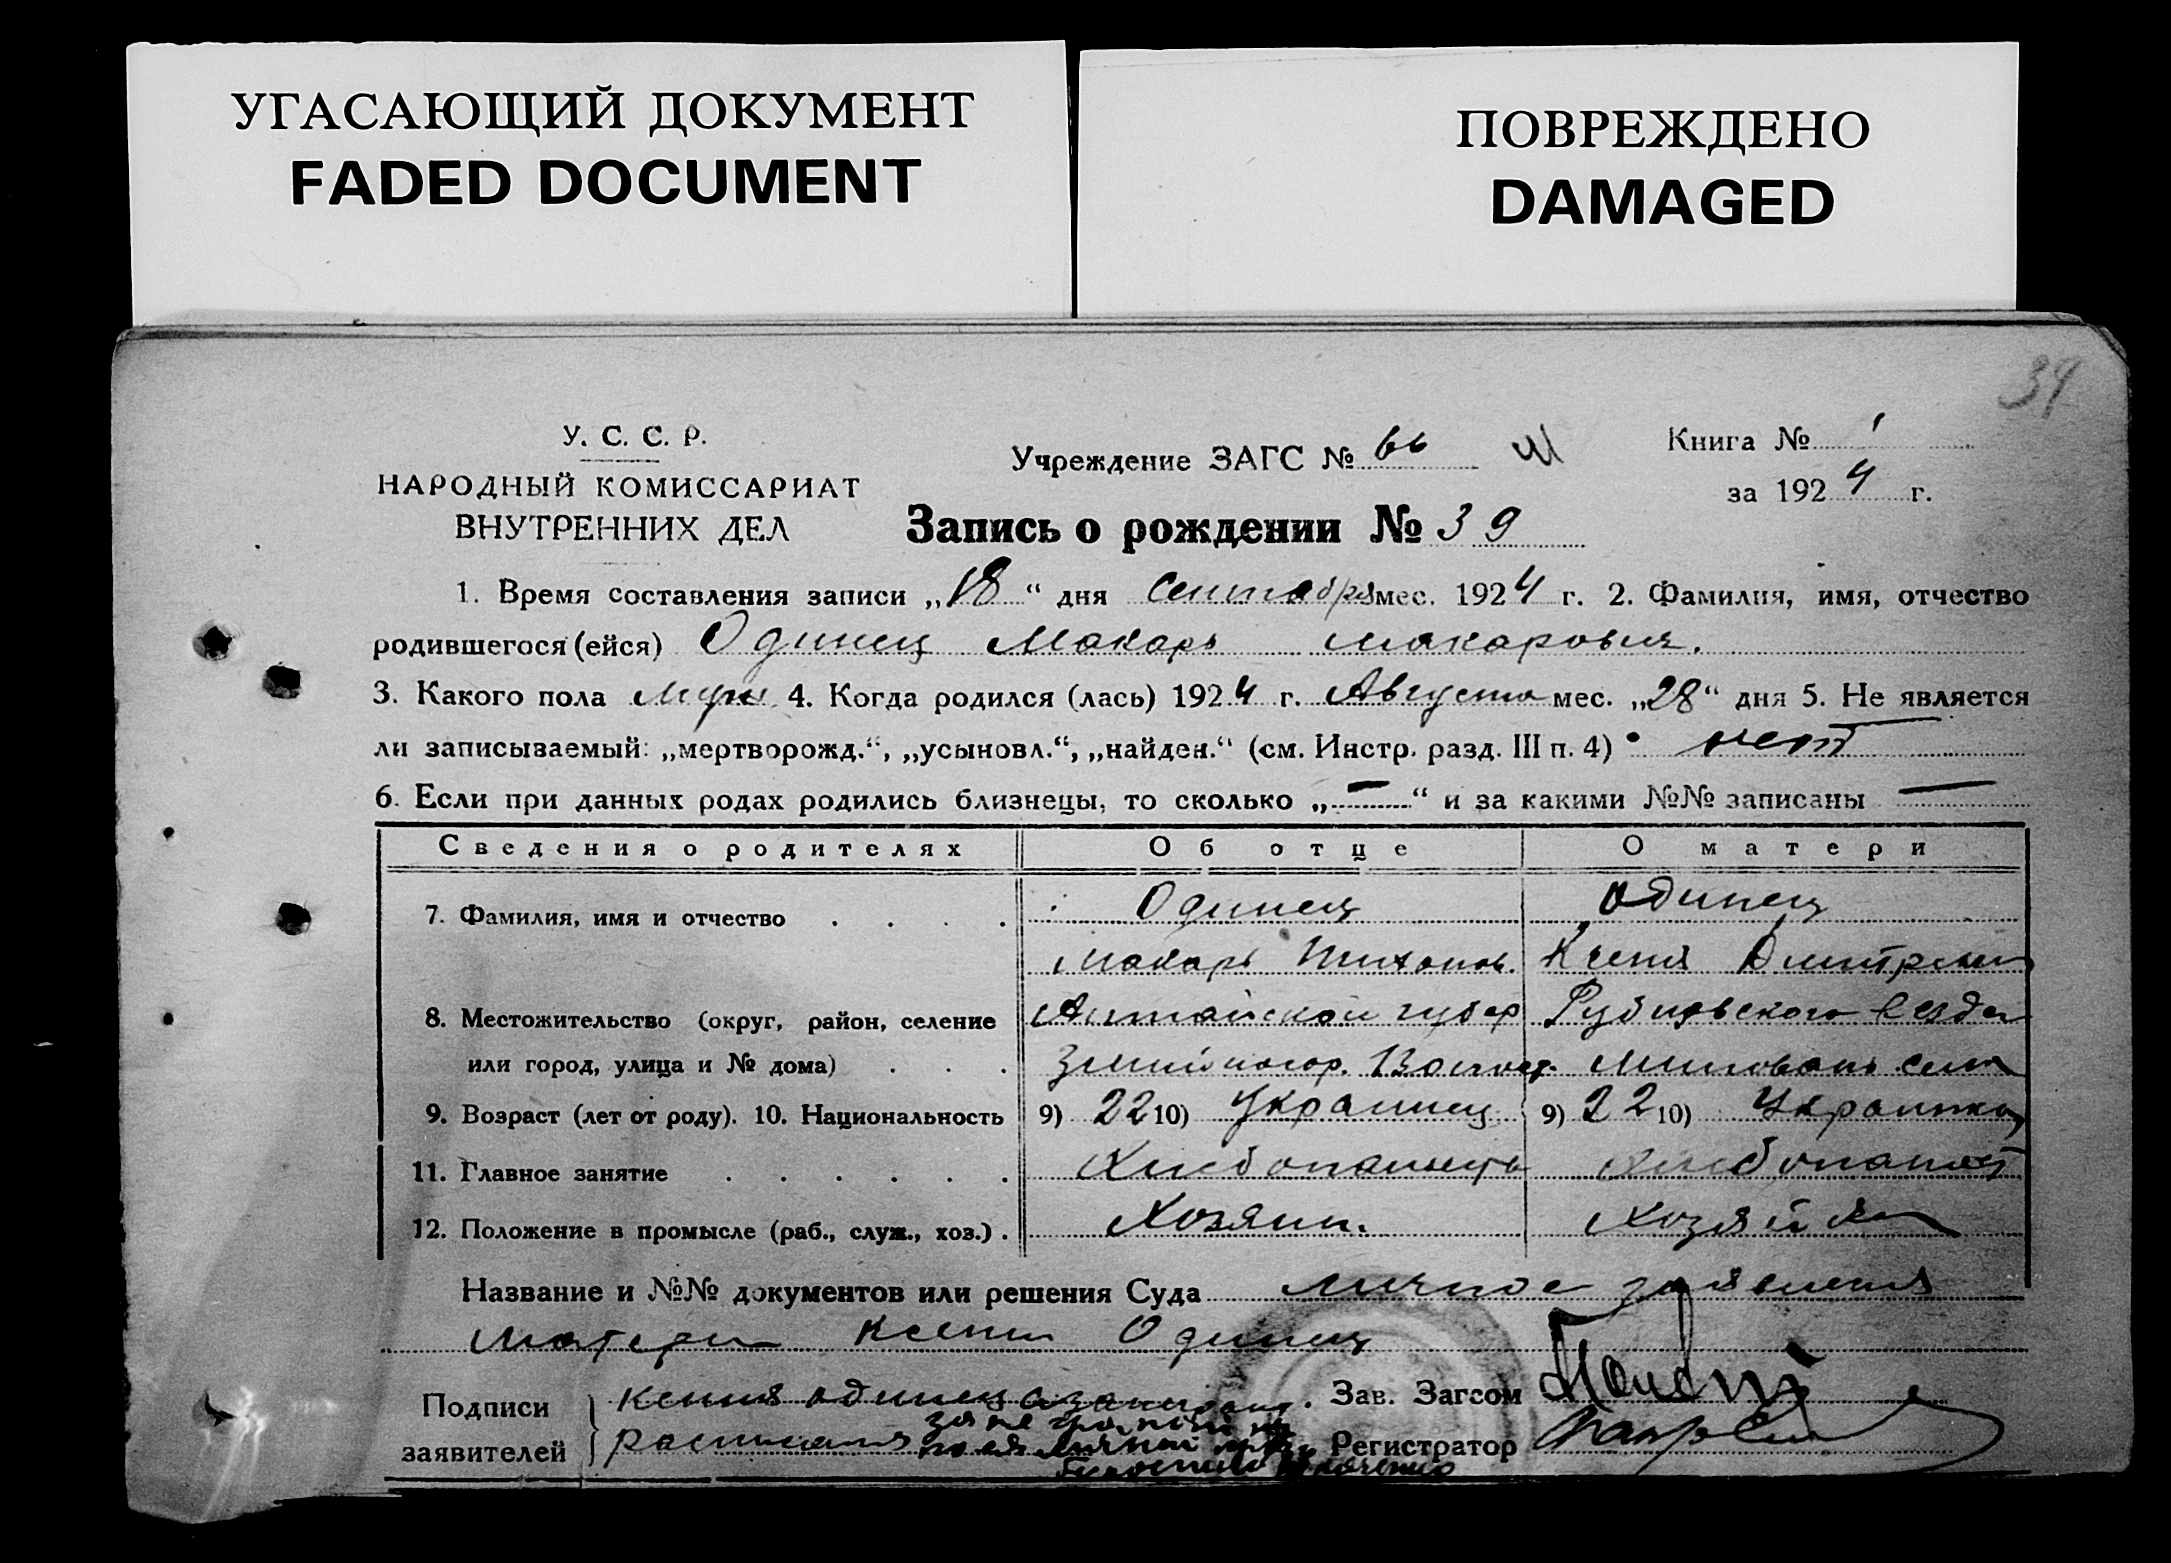 УГАСАЮЩИЙ ДОКУМЕНТ
FADED DOCUMENT
ПОВРЕЖДЕНО
DAMAGED
39
У. С. С. Р.
НАРОДНЫЙ КОМИССАРИАТ
ВНУТРЕННИХ ДЕЛ
Учреждение ЗАГС № 66
Книга № 1
за 1924 г.
Запись о рождении № 39
1. Время составления записи „18“ дня Сентября мес. 1924 г. 2. Фамилия, имя, отчество
родившегося (ейся) Одинец Макарь Макарович.
3. Какого пола муж 4. Когда родился (лась) 1924 г. Августа мес. „28“ дня 5. Не является
ли записываемый: „мертворожд.“, „усыновл.“, „найден.“ (см. Инстр. разд. III п. 4) нет
6. Если при данных родах родились близнецы, то сколько „—“ и за какими №№ записаны —
Сведения о родителях Об отце О матери
7. Фамилия, имя и отчество Одинец Одинец
Макарь Тихонов. Ксения
8. Местожительство (округ, район, селение Алтайской губер Рубцовского
или город, улица и № дома) Змейногор. села
9. Возраст (лет от роду). 10. Национальность 9) 22 10) Украинец 9) 22 10) Украинка
11. Главное занятие Хлебопашець
12. Положение в промысле (раб., служ., хоз.) Хозяин. Хозяйка
Название и №№ документов или решения Суда личное заявления
матери Ксении Одинец
Подписи
заявителей
Ксения Одинец а за
Зав. Загсом
Регистратор